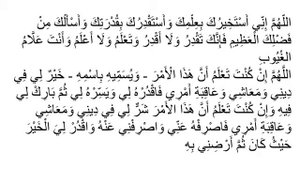 اللَّهُمَّ إِنِّي أَسْتَخِيرُكَ بِعِلْمِكَ وَأَسْتَقْدِرُكَ بِقُدْرَتِكَ وَأَسْأَلُكَ مِنْ
فَضْلِكَ الْعَظِيمِ فَإِنَّكَ تَقْدِرُ وَلَا أَقْدِرُ وَتَعْلَمُ وَلَا أَعْلَمُ وَأَنْتَ عَلَّامُ
الْغُيُوبِ
اللَّهُمَّ إِنْ كُنْتَ تَعْلَمُ أَنَّ هَذَا الْأَمْرَ - وَيُسَمِّيهِ بِاسْمِهِ - خَيْرٌ لِي فِي
دِينِي وَمَعَاشِي وَعَاقِبَةِ أَمْرِي فَاقْدُرْهُ لِي وَيَسِّرْهُ لِي ثُمَّ بَارِكْ لِي
فِيهِ وَإِنْ كُنْتَ تَعْلَمُ أَنَّ هَذَا الْأَمْرَ شَرٌّ لِي فِي دِينِي وَمَعَاشِي
وَعَاقِبَةِ أَمْرِي فَاصْرِفْهُ عَنِّي وَاصْرِفْنِي عَنْهُ وَاقْدُرْ لِيَ الْخَيْرَ
حَيْثُ كَانَ ثُمَّ أَرْضِنِي بِهِ